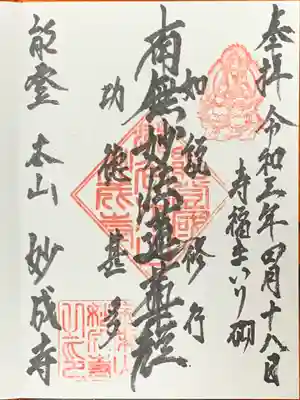 奉拝 令和三年四月十八日
寿福まいり砌
如説修行
南無妙法蓮華経
功徳甚多
能登 本山 妙成寺